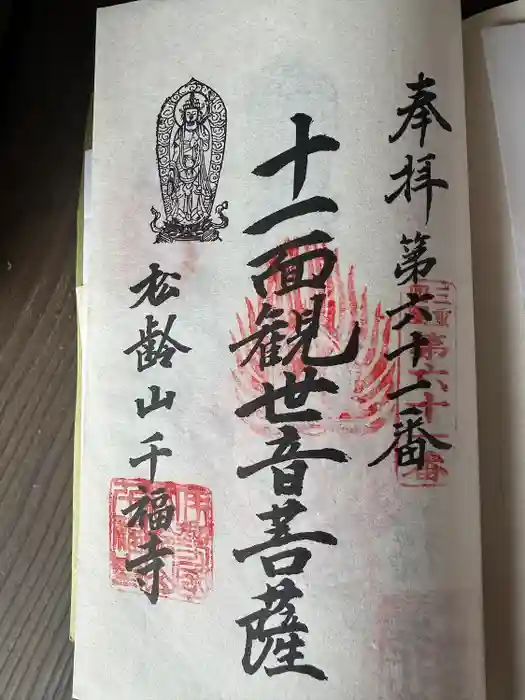 奉拝 第六十一番
十一面観世音菩薩
松齢山千福寺
三重
第六十一番